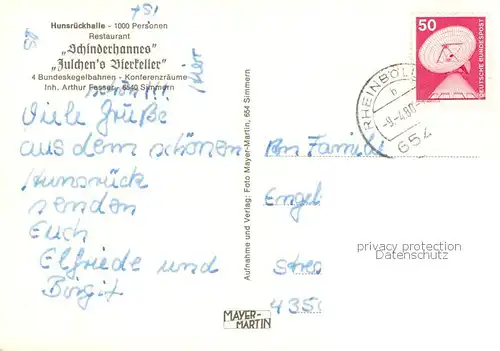 Hunsrückhalle - 1000 Personen
Restaurant
„Schinderhannes"
„Julchen's Bierkeller"
4 Bundeskegelbahnen - Konferenzräume
Inh. Arthur Fesser - 6540 Simmern
Viele Grüße
aus dem schönen
Hunsrück
senden
Euch
Elfriede und
Birgit
Aufnahme und Verlag: Foto Mayer-Martin, 654 Simmern
MAYER-
MARTIN
50
DEUTSCHE BUNDESPOST
RHEINBÖLL
b
654
An Familie
Engel
4350
privacy protection
Datenschutz